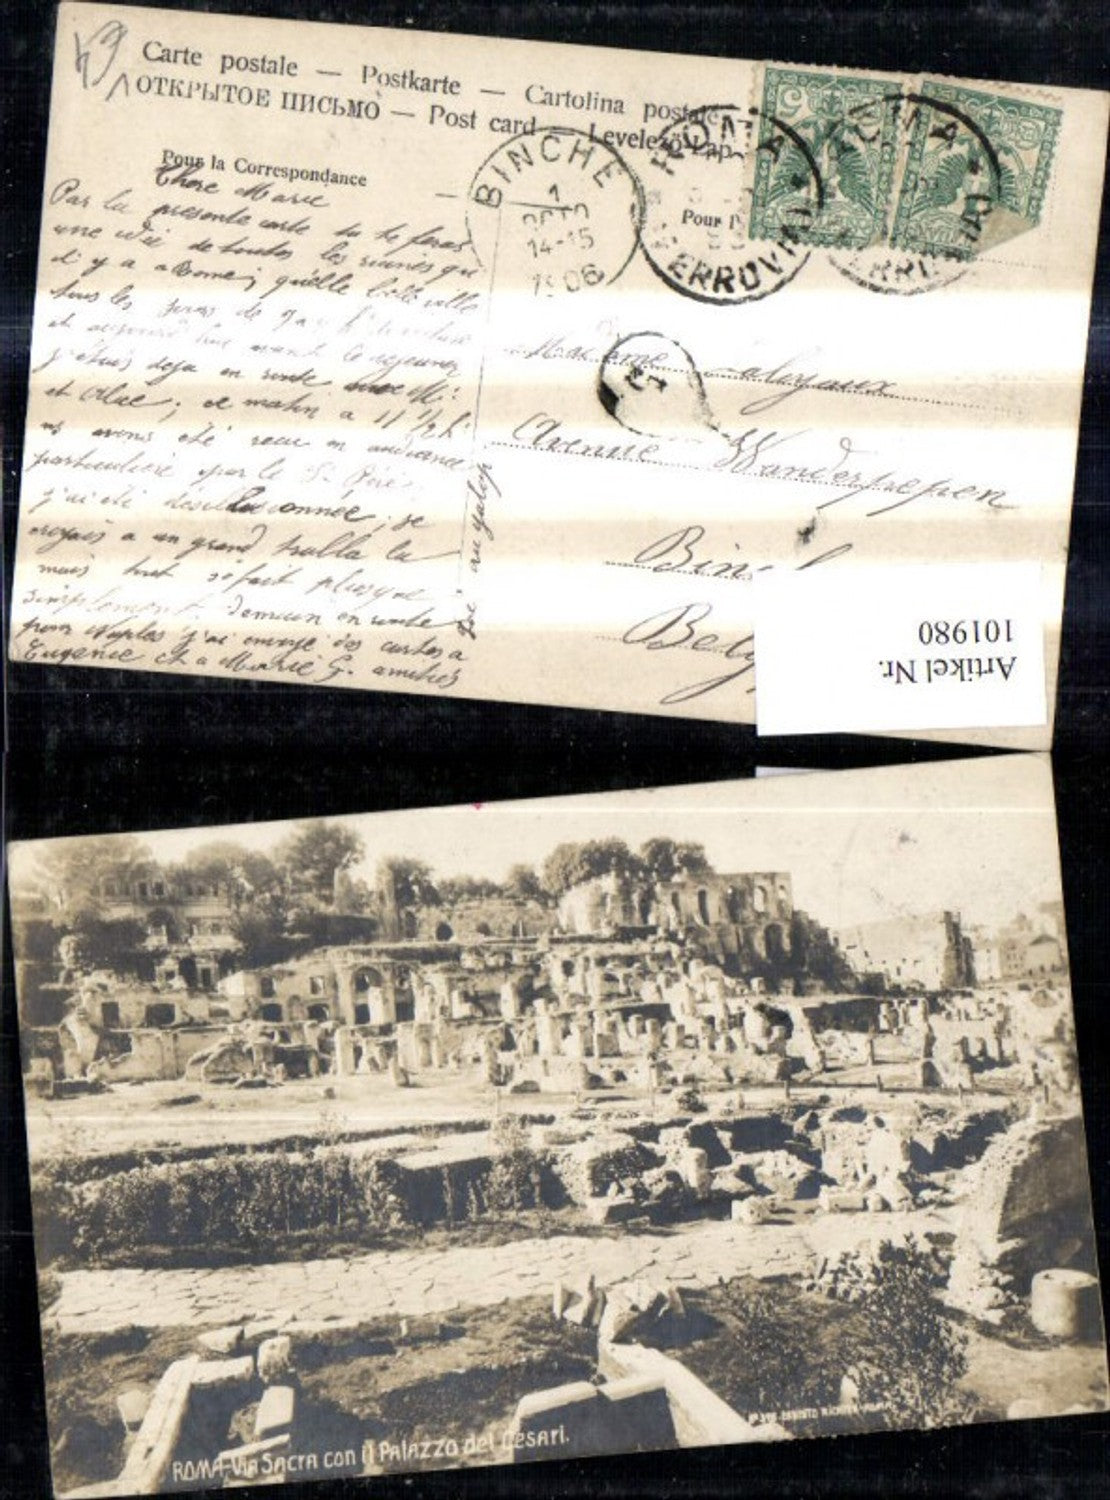 Carte postale — Postkarte — Cartolina postale —
ОТКРЫТОЕ ПИСЬМО — Post card — Levelező-Lap
Pour la Correspondance
Pour l'
BINCHE
1
OCTO
14-15
1906
ROMA
FERROVIA
ROMA
FERROVIA
Chère Marie
Par la présente carte tu te feras
une idée de toutes les ruines qui
il y a a Rome; qu'elle belle ville
tous les jours
et aujourd'hui avant le dejeuner
j'étais deja en route avec M:
et Mlle; ce matin a 11 1/2 h:
ns avons été recu en audience
particulière par le St Père
j'ai été désillusionnée; je
croyais a un grand tralla la
mais tout se fait plusque
simplement. Demain en route
pour Naples j'ai envoyé des cartes a
Eugenie et a Marie G. amitiés
au galop
Madame
Avenue Wanderpepen
Bin
Belg
Artikel Nr.
101980
ROMA, Via Sacra con il Palazzo dei Cesari.